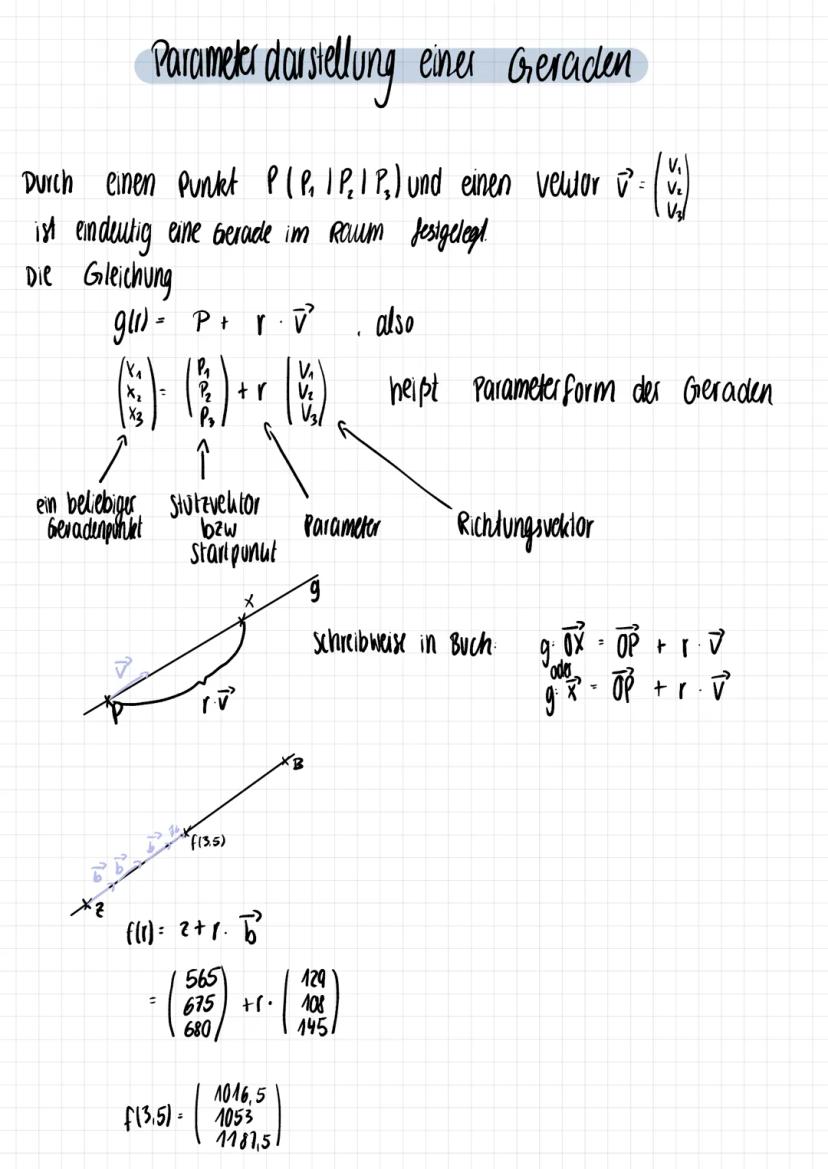 Parameterdarstellung einer Geraden
Durch einen Punkt P(P₁ | P₂ | P₃) und einen Vektor v⃗ = (V₁ V₂ V₃)
ist eindeutig eine Gerade im Raum festgelegt.
Die Gleichung
g(r) = P + r · v⃗ , also
(x₁ x₂ x₃) = (P₁ P₂ P₃) + r (V₁ V₂ V₃) heißt Parameterform der Geraden
ein beliebiger Geradenpunkt
Stützvektor bzw Startpunkt
Parameter
Richtungsvektor
g
x
v⃗
P
r·v⃗
Schreibweise in Buch: g: OX⃗ = OP⃗ + r · v⃗
oder
g: x⃗ = OP⃗ + r · v⃗
B
f(3,5)
b⃗ b⃗ b⃗
z
f(r) = z + r · b⃗
= (565 675 680) + r · (129 108 145)
f(3,5) = (1016,5 1053 1187,5)